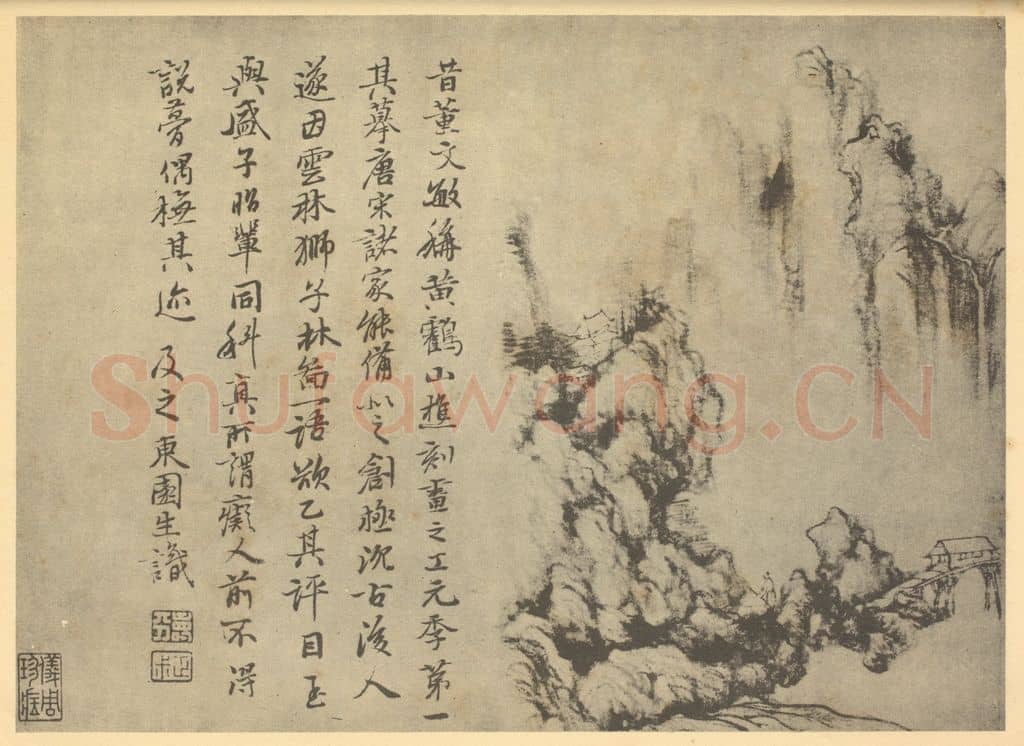 昔董文敏稱黃鶴山樵刻畫之工元季第一
其摹唐宋諸家能備以之創極沉古後人
遂因雲林獅子林啚一語欲乙其評目至
與盛子昭輩同科真所謂癡人前不得
說夢偶橅其迹 及之東園生識
正叔
儀周珍藏
Shufawang.CN